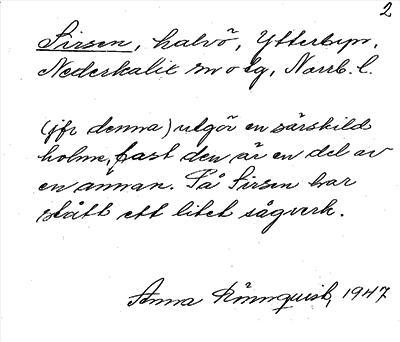 2
Sirsen, halvö, Ytterbyn,
Nederkalix sn o lg, Norrb. l.
(jfr denna) utgör en särskild
holme, fast den är en del av
en annan. På Sirsen har
stått ett litet sågverk.
Anna Rönnquist, 1947